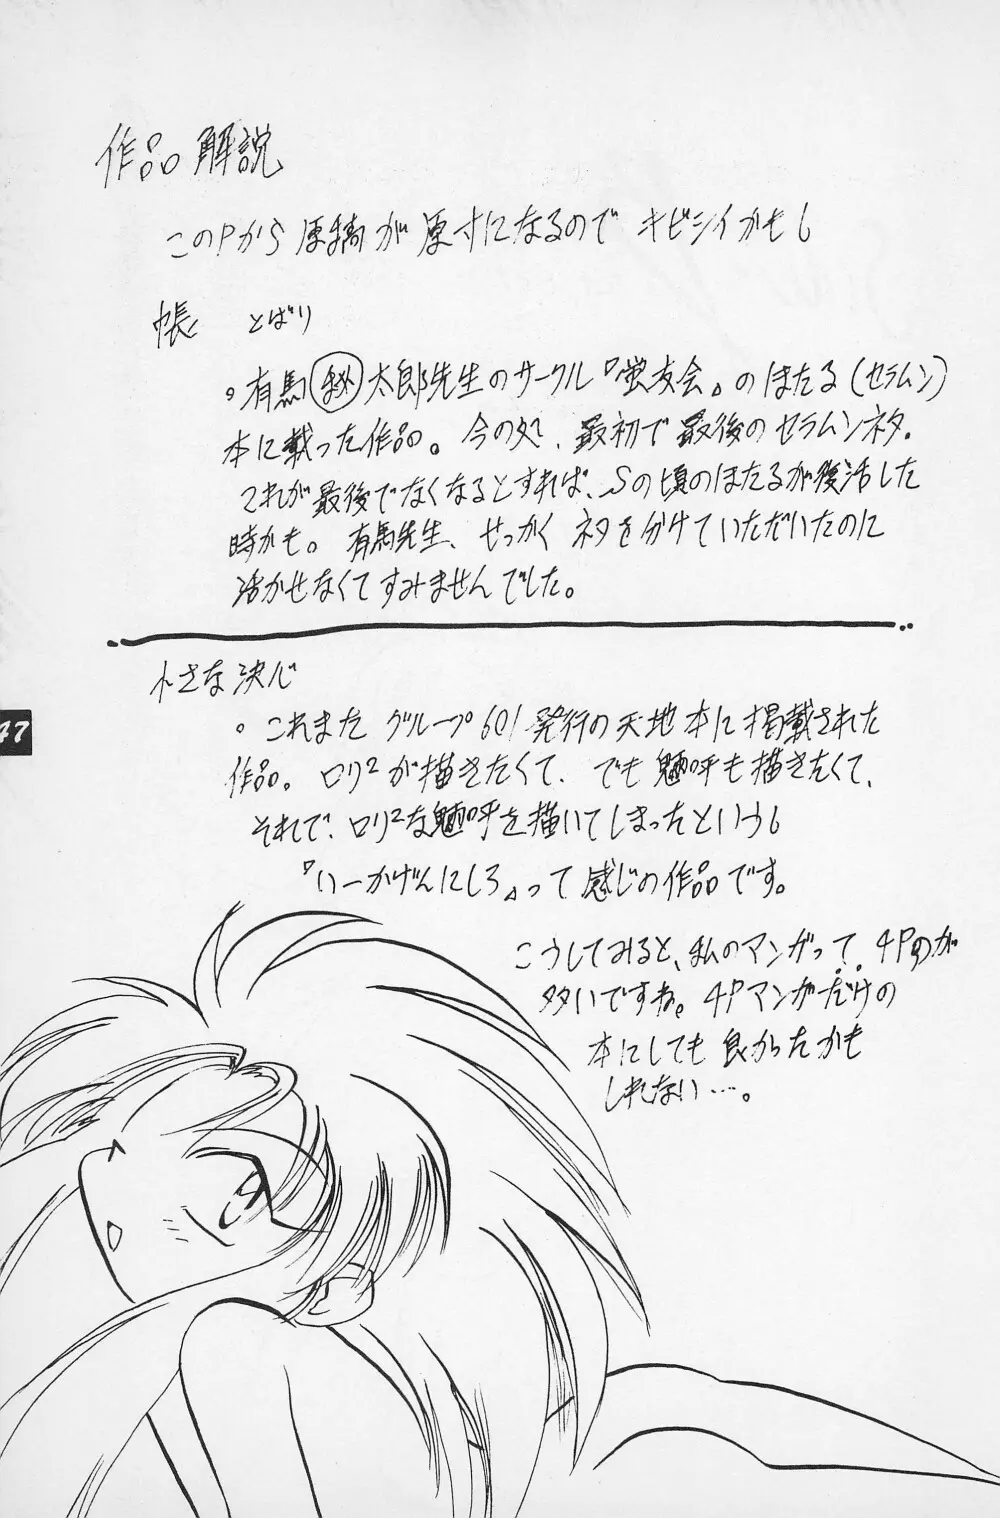 作品解説
このPから原稿が原寸になるのでキビシイかもし
帳 とばり
。有馬㊙太郎先生のサークル『蛍友会』のほたる(セラムン)
本に載った作品。今の処、最初で最後のセラムンネタ。
これが最後でなくなるとすれば、Sの頃のほたるが復活した
時かも。有馬先生、せっかくネタを分けていただいたのに
活かせなくてすみませんでした。
小さな決心
。これまたグループ601発行の天地本に掲載された
作品。ロリ²が描きたくて、でも魎呼も描きたくて、
それで、ロリ²な魎呼を描いてしまったというし
『いーかげんにしろ』って感じの作品です。
47
こうしてみると、私のマンガって、4Pのが
多いですね。4Pマンガだけの
本にしても良かったかも
しれない…。